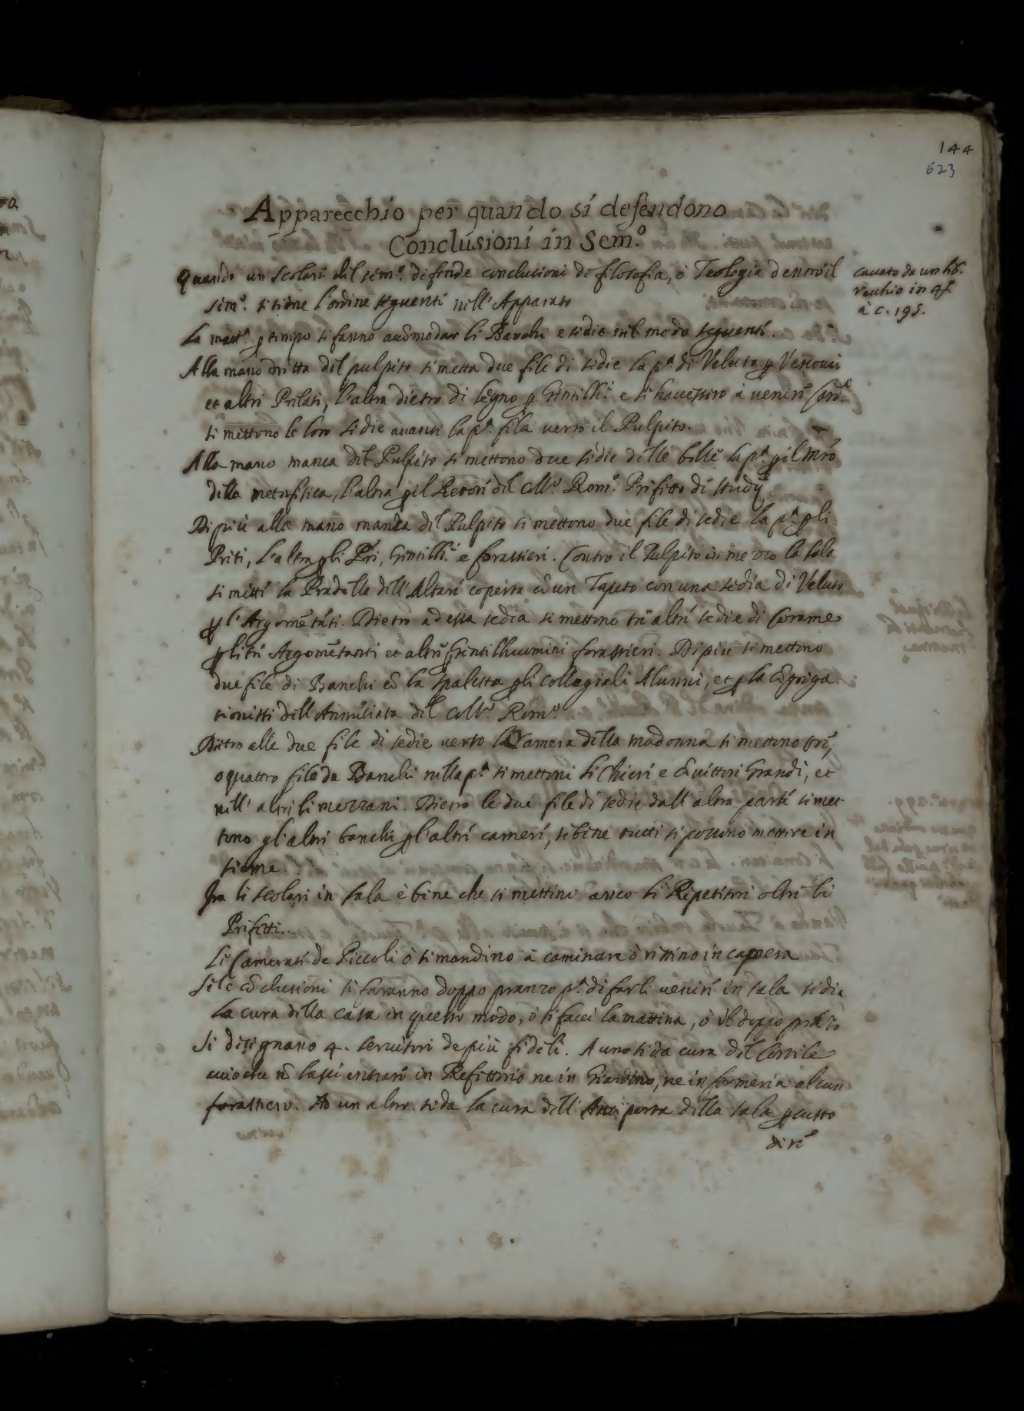 144
623
Apparecchio per quando si defendono
Conclusioni in Sem.º
Quando un scolare del sem.º difende conclusioni de filosofia, ò Teologia dentro il
sem.º si tiene l'ordine seguente nell'Apparato
La matt.ª p tempo si fanno accõmodar li Banchi e sedie nel modo seguente.
Alla mano dritta del pulpito si metta due file di sedie la p.ª di Veluto p Vescovi
et altri Prelati, l'altra dietro di legno p Gentilh.i e si havessero à venire Card.li
si mettono le loro sedie avanti la p.ª fila verso il Pulpito.
Alla mano manca del Pulpito si mettono due sedie delle belle la p.ª p il Mrõ
della metafisica, l'altra p il Rettore del Coll.º Rom.º Prefetto di studij
Di più alla mano manca del Pulpito si mettono due file di sedie la p.ª p gli
Preti, l'altra p gli Pri, Gentilh.i e forastieri. Contro il Pulpito in mezzo la sala
si mette la Pradella dell'Altare coperta cõ un Tapeto con una sedia di Veluto
p l'Argomẽtãti. Dietro ad essa sedia si mettono trè altre sedie di Corame
p li trè Argomẽtanti et altri Gentilhuomini forastieri. Di più si mettono
due file di Banchi cõ la spaletta p gli Collegiali Alunni, et p la Cõgriga
tionisti dell'Annũtiata del Coll.º Rom.º
Dietro alle due file di sedie verso la Camera della madonna si mettono trè,
o quattro file de Banchi nella p.ª si mettono li Chieri e Cõvittori Grandi, et
nell'altri li mezzani. Dietro le due file di sedie dall'altra parte si met-
tono gl'altri banchi p l'altre camere, se bene tutti si possino mettere in
sieme.
Fra li scolari in sala è bene che si mettino anco li Repetitori oltre li
Prefetti.
Li Camerate de Piccoli ò si mandino a caminare ò restino in camera
Se le Cõclusioni si faranno doppo pranzo p.ª di farli venire in sala si dia
La cura della casa in questo modo, ò si facci la mattina, ò il doppo prãzo
Si disegnano 4. servitori de più fideli. A uno si da cura del Cortile
acioche nõ lasci entrare in Refettorio ne in Giardino, ne infermeria alcun
forastiero. Ad un altro si da la cura dell'Antiporta della sala p custo
dire
cavato da un lib.
vecchio in 4.º
à c. 195.